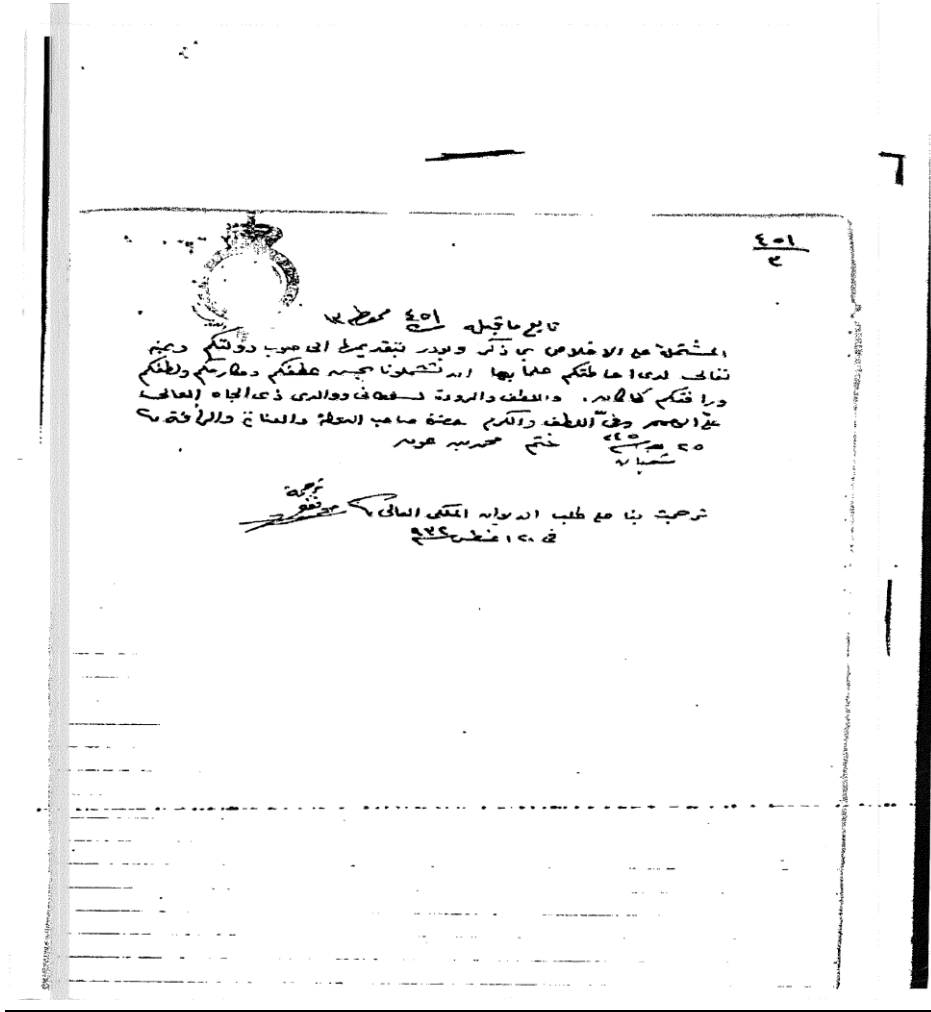 ٤٥١
٣
تابع ما قبله ٤٥١ محفظة ١٣
المشتملة على الاخلاص بمن ذكر وبودر بتقديمها الى صوب دولتكم وبمنه
تعالى لدى احاطتكم علماً بها ان تشملونا بحسن عطفكم ومكارمكم ولطفكم
ورأفتكم كما كان. واللطف والمروءة لسلطانى ووالدى ذى الجاه العالى
علىّ الهمم وفىّ اللطف والكرم حضرة صاحب الدولة والعناية والرأفة
٢٥ شعبان سنة ٢٤٥ ختم محمد بن عون
ترجمة
ترجمت بنا على طلب الديوان الملكى العالى
فى ٢٠ اغسطس ٩٣٢